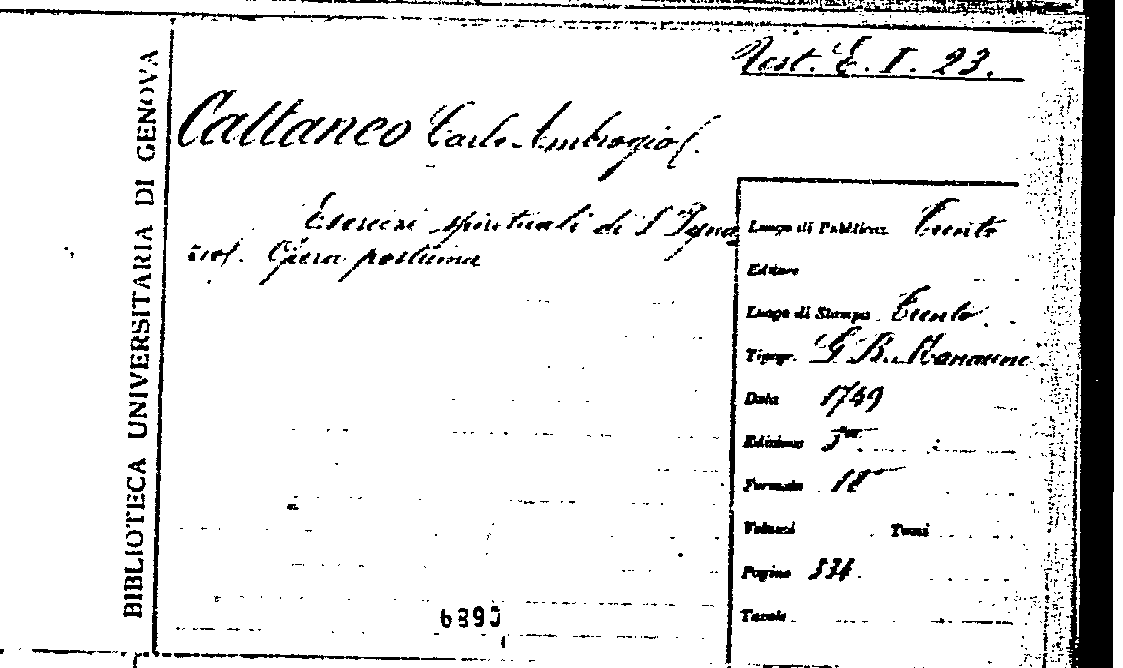 Rest. E. I. 23.
BIBLIOTECA UNIVERSITARIA DI GENOVA
Cattaneo Carlo Ambrogio S.
Esercizi spirituali di S. Igna
zio. Opera postuma
Luogo di Pubblicaz. Trento
Editore
Luogo di Stampa Trento
Tipogr. G. B.
Data 1749
Edizione
Formato
Volumi Tomi
Pagine 334.
Tavole